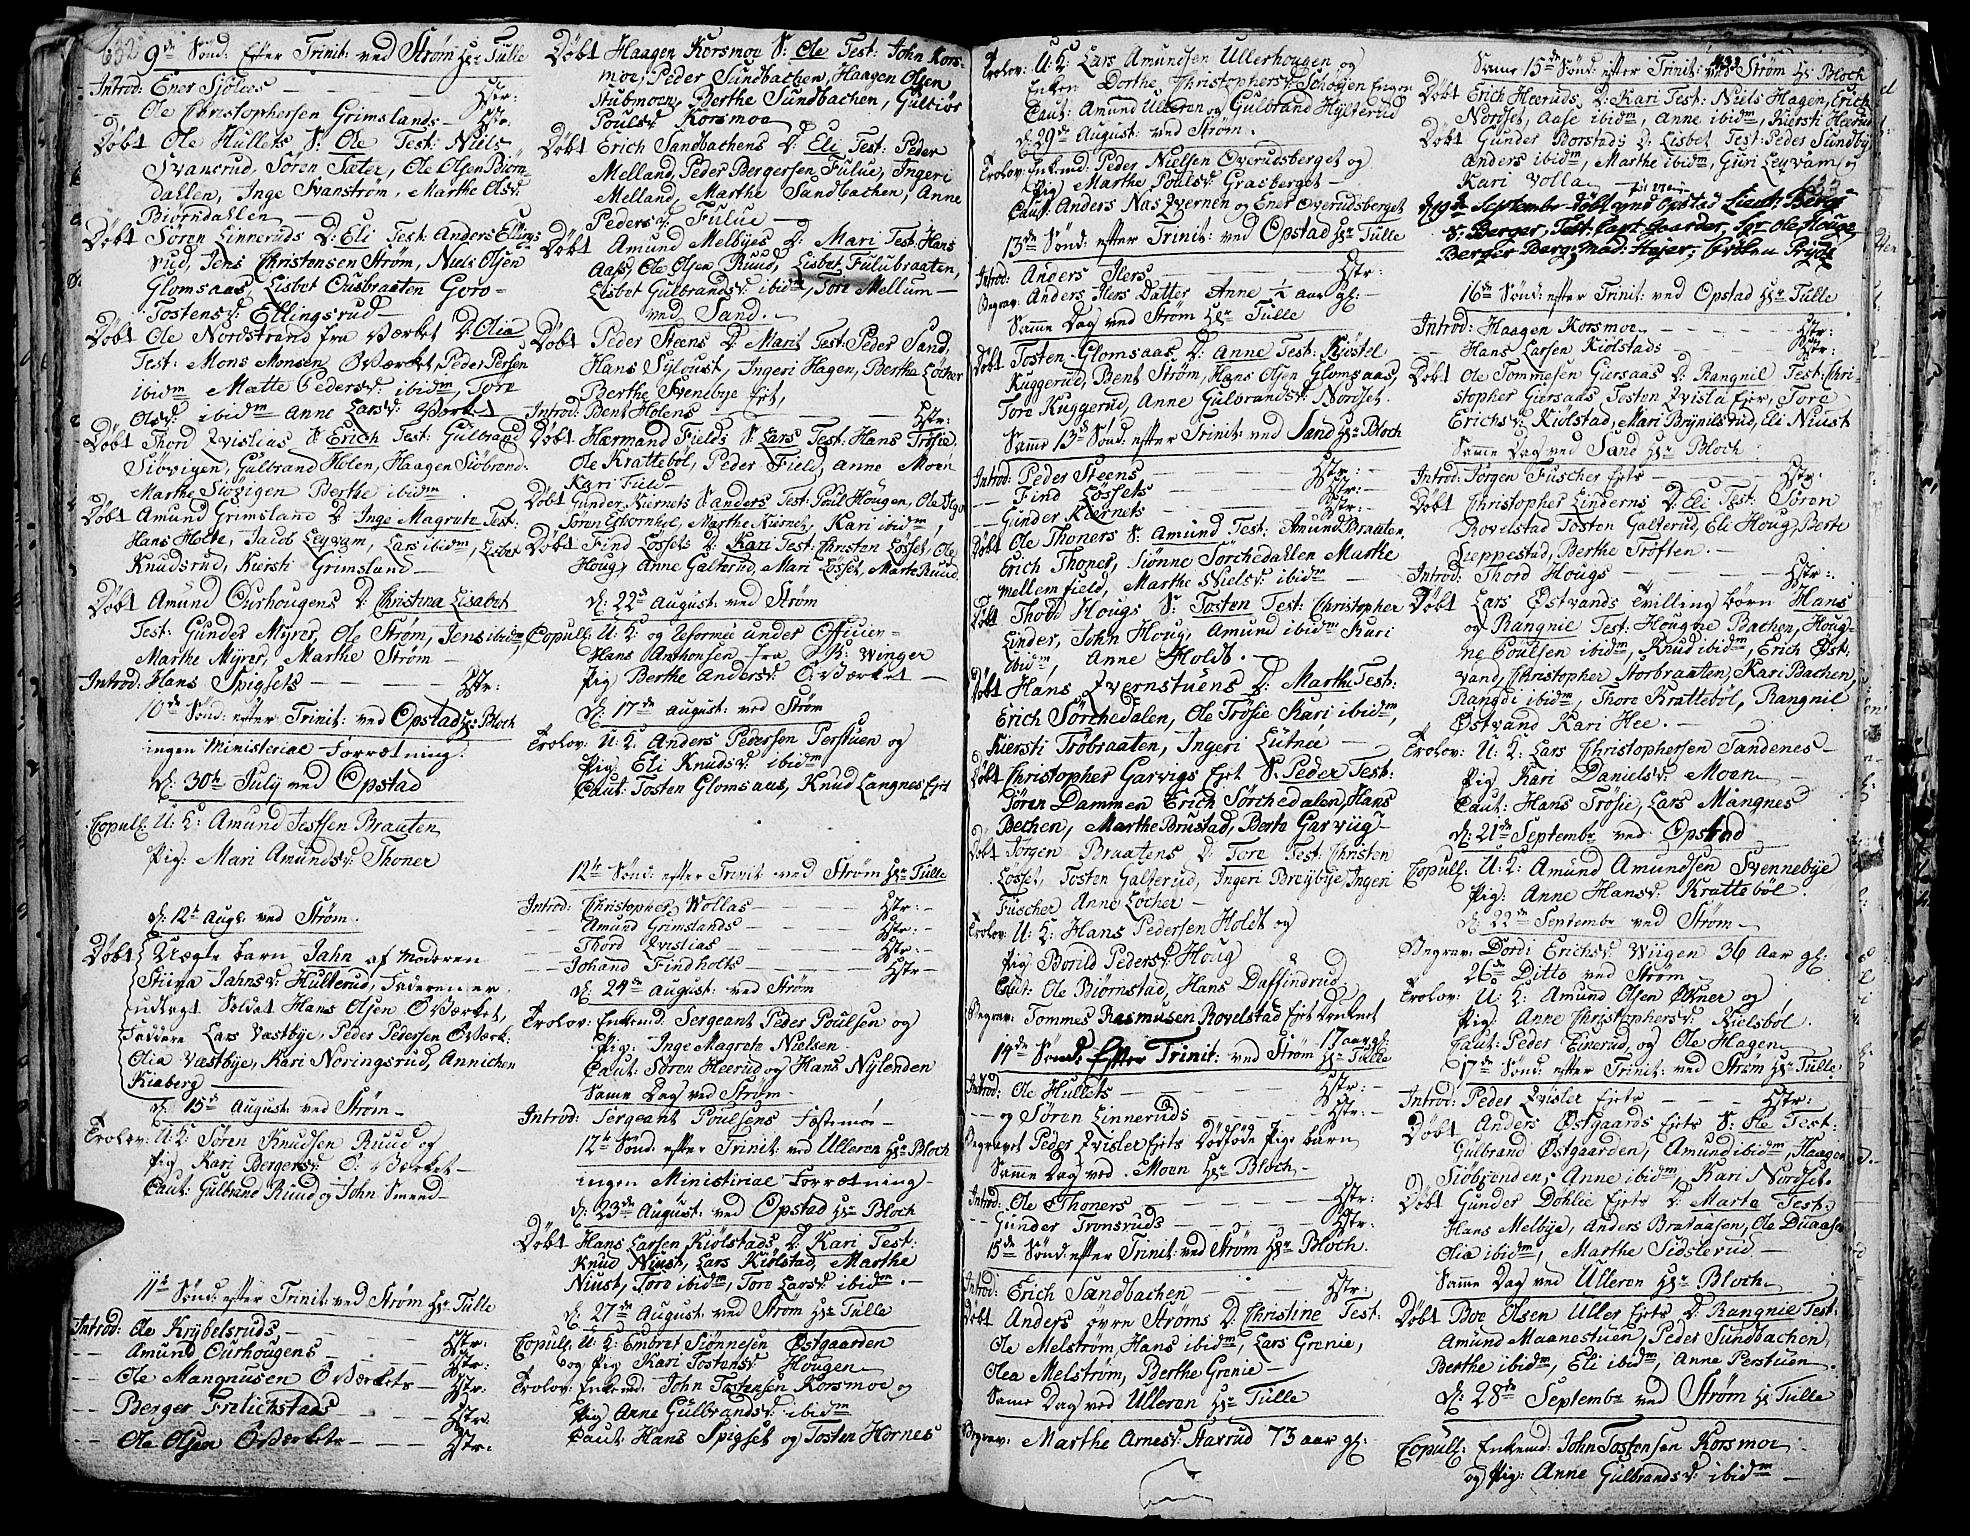 632
9de Sønd: efter Trinit: ved Strøm Hr Tulle
Introd: Ener Sjoless — — — Hstr:
Ole Christophersen Grimslands — Hstr:
Døbt Ole Hullets S: Ole Test: Niels
Svansrud, Søren Sater, Ole Olsen Biørn-
dahlen, Inge Svanstrøm, Marthe Olsd:
Biørndahlen —
Døbt Søren Linneruds D: Eli Test: Anders Ellings
rud, Jens Christensen Strøm, Niels Olsen
Glomsaas, Lisbet Ousbraaten Goro
Tostensd: Ellingsrud —
Døbt Ole Nordstrand fra Værket D: Olia
Test: Mons Monsen Oværket, Peder Persen
ibidm Matte Pedersd: ibidm, Tore
Olsd: ibidm Anne Larsd: Værket
Døbt Thord Qvislias S: Erich Test: Gulbrand
Siøvigen, Gulbrand Holen, Haagen Siøbrend:
Marthe Siøvigen Berthe ibidm
Døbt Amund Grimslane D: Inge Magrete Test:
Hans Holte, Jacob Leyvam, Lars ibidm, Lisbet
Knudsrud, Kiersti Grimsland —
Døbt Amund Ourhougens D: Christina Lisabet
Test: Gunder Myrer, Ole Strøm, Jens ibidm,
Marthe Myrer, Marthe Strøm —
Introd: Hans Spigsets — — — Hstr:
10de Sønd: efter Trinit: ved Opstad Hr: Bloch
ingen Ministerial-Forretning.
D: 30te July ved Opstad
Copull: U: K: Amund Jestsen Braaten
Pig: Mari Amundsd: Thoner
D: 12te Augs: ved Strøm.
Døbt Uægte barn Jahn af Moderen
Stiva Jahnsd: Hulterud, Faderen er
udlagt Soldat Hans Olsen Oværket,
Faddere Lars Vastbye, Peder Pedersen Oværk:
Olia Vastbye, Kari Noringsrud, Annichen
Kiaberg —
D: 15de August: ved Strøm —
Trolov: U: K: Søren Knudsen Ruud og
Pig: Kari Bergersd: O: Værket —
Caut: Gulbrand Ruud og John Smeed —
11te Sønd: efter Trinit: ved Strøm Hr Tulle
Introd: Ole Krybelsruds — Hstr:
— Amund Ourhougens — Hstr:
— Ole Mangnusen Oværkets — Hstr:
— Berger Fredichstads — Hstr:
— Ole Olsen Oværkets — — Hstr:
Døbt Haagen Korsmoe S: Ole Test: John Kors-
moe, Peder Sundbachen, Haagen Olsen
Stubmoen, Berthe Sundbachen, Gulbiør
Poulsd: Korsmoe
Døbt Erich Sandbachens D: Eli Test: Peder
Melland, Peder Bergersen Fulue, Ingeri
Melland, Marthe Sandbachen, Anne
Pedersd: Fulue —
Døbt Amund Melbyes D: Mari Test: Hans
Aass, Ole Olsen Ruud, Lisbet Fulubraaten,
Lisbet Gulbrandsd: ibidm, Tore Mellum —
ved Sand. —
Døbt Peder Steens D: Marit Test: Peder Sand,
Hans Syloust, Ingeri Hagen, Berthe Locher
Berthe Svenebye Ejt,
Introd: Bent Holens — — — Hstr:
Døbt Hærmand Fields S: Lars Test: Hans Trøsie
Ole Krattebøl, Peder Field, Anne Moen
Kari Fule —
Døbt Gunder Kiernets S: Anders Test: Poul Hougen, Ole
Søren Gkornhol, Marthe Kiernet, Kari ibidm
Døbt Find Løssets D: Kari Test: Christen Løsset, Ole
Houg, Anne Galterud, Mari Løsset, Marte Ruud,
D: 22de August: ved Strøm
Copull: U: K: og reformée under Officier
Hans Anthonsen fra Winger
Pig: Berthe Andersd: O: Værket —
D: 17de August: ved Strøm
Trolov: U: K: Anders Pedersen Perstuen og
Pig: Eli Knudsd: ibidm
Caut: Tosten Glomsaas, Knud Langnes Ejet
12te Sønd: efter Trinit: ved Strøm Hr Tulle
Introd: Christopher Wollas — — Hstr: —
— Amund Grimslands — — Hstr: —
— Thord Qvislias — — Hstr: —
— Johand Findholts — — Hstr —
D: 24de August: ved Strøm
Trolov: Enkemd. Sergeant Peder Poulsen og
Pig: Inge Magrete Nielsen
Caut: Søren Heerud og Hans Nylenden
Same Dag ved Strøm —
Introd: Sergeant Poulsens Festemøe —
12te Sønd: efter Trinit: ved Ulleren Hr Bloch
ingen Ministerial-Forretning —
D: 23de August: ved Opstad Hr Bloch
Døbt Hans Larsen Kiølstads D: Kari Test:
Knud Niust, Lars Kiølstad, Marthe
Niust, Toro ibidm, Toro Larsd: ibidm. —
D: 27de August: ved Strøm Hr Tulle
Copull: U: K: Embret Siønnesen Østgaarden
og Pig: Kari Tostensd: Hougen
Trolov: Enkemd: John Tostensen Korsmoe og
Pig: Anne Gulbrandsd: ibidm
Caut: Hans Spigset og Tosten Hornes
Trolov: U: K: Lars Amundsen Ullerhougen og
Enken Dorthe Christophersd: Schøyen Engen
Caut: Amund Ulleren og Gulbrand Hylterud
D: 29de August: ved Strøm.
Trolov: Enkemd: Peder Nielsen Overudsberget og
Pig: Marthe Poulsd: Grasberget —
Caut: Anders Nas Qvernen og Ener Overudsberget
13de Sønd: efter Trinit: ved Opstad Hr Tulle
Introd: Anders Ilers — — — Hstr:
Begrav: Anders Ilers Datter Anne ½ aar gl: —
Same Dag ved Strøm Hr Tulle
Døbt Tosten Glomsaas D: Anne Test: Kiøstel
Kuggerud, Bent Strøm, Hans Olsen Glomsaas,
Tore Kuggerud, Anne Gulbrandsd: Nordset.
Same 13de Sønd: efter Trinit: ved Sand Hr Bloch
Introd: Peder Steens — — — Hstr: —
— Find Løssets — — — Hstr: —
— Gunder Kiernets — — — Hstr: —
Døbt Ole Thoners S: Amund Test: Amund Braaten,
Erich Thoner, Siønne Sørchedahlen Marthe
mellemfield, Marthe Nielsd: ibidm —
Døbt Thord Hougs S: Tosten Test: Christopher
Linder, John Houg, Amund ibidm Kari
ibidm, Anne Holdt. —
Døbt Hans Qvernstuens D: Marthe Test:
Erich Sørchedalen, Ole Trøsie Kari ibidm,
Kiersti Trobraaten, Ingeri Lutnée —
Døbt Christopher Garvigs Ejet S: Peder Test:
Søren Dammen Erich Sørchedalen, Hans
Bechen, Marthe Brustad, Berte Garviig —
Døbt Jørgen Braatens D: Tore Test: Christen
Løsset, Tosten Galterud, Ingeri Breybye, Ingeri
Fuscher Anne Locher —
Trolov: U: K: Hans Pedersen Holdt og
Pig: Borild Pedersd: Houg
Caut: Ole Biørnstad, Hans Duffindrud,
Begrav: Tommes Rasmusen Rovelstad Ejet Druknet
17 aar gl:
14de Sønd: Efter Trinit: ved Strøm Hr Tulle
Introd: Ole Hullets — — — Hstr: —
— og Søren Linneruds — — Hstr: —
Begravet Peder Qvisler Ejets Dødfødde Pige barn
Same Dag ved Moen Hr Bloch —
Introd: Ole Thoners — — — Hstr:
— Gunder Tronsruds — — Hstr:
15de Sønd: efter Trinit: ved Strøm Hr Bloch.
Introd: Erich Sandbachen — — Hstr:
Døbt Anders øvre Strøms D: Christine Test:
Ole Melstrøm, Hans ibidm, Lars Grenie,
Olea Melstrøm, Berthe Grenie —
Same Dag ved Ulleren Hr Tulle
Begrav: Marthe Arnesd: Harrud 73 aar gl:
633
Same 15de Sønd: efter Trinit: ved Strøm Hr Bloch
Døbt Erich Heeruds D: Kari Test: Niels Hagen, Erich
Nordset, Aase ibidm, Anne ibidm, Kiersti Heerud
Døbt Gunder Borstads D: Lisbet Test: Peder Sundby
Anders ibidm, Marthe ibidm, Guri Leyvam og
Kari Volla —
633
D: 19de September døbt ved Opstad Lieut: Bergs
S: Berger, Test: Capt: Gaarder, Hr Ole Houge,
Berger Berg, Mad: Høyer, Frøken Prydz
16de Sønd: efter Trinit: ved Opstad Hr Tulle
Introd: Haagen Korsmoe — — — Hstr:
— Hans Larsen Kiølstads — — Hstr:
Døbt Ole Tommesen Giersaas D: Rangnil Test: Chri-
stopher Giersaas Tosten Qvisla Ejer, Tore
Erichsd: Kiølstad, Mari Brynilsrud, Eli Niust
Same Dag ved Sand Hr Bloch
Introd: Jørgen Fuscher Ejets — — Hstr
Døbt Christopher Linderns D: Eli Test: Søren
Rovelstad Tosten Galterud, Ele Houg, Berte
Seppestad, Berthe Trøften. —
Introd: Thord Hougs — — — Hstr:
Døbt Lars Østvands Tvilling børn Hans
og Rangnil Test: Hougne Bachen, Houg-
ne Poulsen ibidm, Knud ibidm, Erich Øst:
vand, Christopher Storbraaten, Kari Bachen,
Rangdi ibidm, Thore Krattebøl, Rangnil
Østvand Kari Hee. —
Trolov: U: K: Lars Christophersen Sandenes —
Pig: Kari Danielsd: Moen —
Caut: Hans Trøsie, Lars Mangnes
D: 21de Septembr ved Opstad
Copull: U: K: Amund Amundsen Svennebye
Pig: Anne Hansd: Krattebøl.
D: 22de Septembr ved Strøm —
Begrav: Dordi Erichsd: Wiigen 36 Aar gl:
26de Ditto ved Strøm
Trolov: U: K: Amund Olsen Økner og
Pig: Anne Christophersd: Kielsbøl.
Caut: Peder Einerud, og Ole Hagen
17de Sønd: efter Trinit: ved Strøm Hr Tulle
Introd: Peder Qvisler Ejets — — Hstr:
Døbt Anders Østgaards Ejets S: Ole Test:
Gulbrand Østgaarden, Amund ibidm, Haagen
Siøbrenden, Anne ibidm, Kari Nordset.
Døbt Gunder Dohlie Ejets D: Marte Test:
Hans Melbye, Anders Brataasen, Ole
Olia ibidm, Marthe Sidslerud —
Same Dag ved Ulleren Hr Bloch
Døbt Boe Olsen Uller Ejets D: Rangnil Test:
Amund Maanestuen, Peder Sundbachen,
Berthe ibidm, Eli ibidm, Anne Perstuen
D: 28de Septembr ved Strøm Hr Tulle
Copull: Enkemd: John Tostensen Korsmoe
og Pig: Anne Gulbrandsd: ibidm —